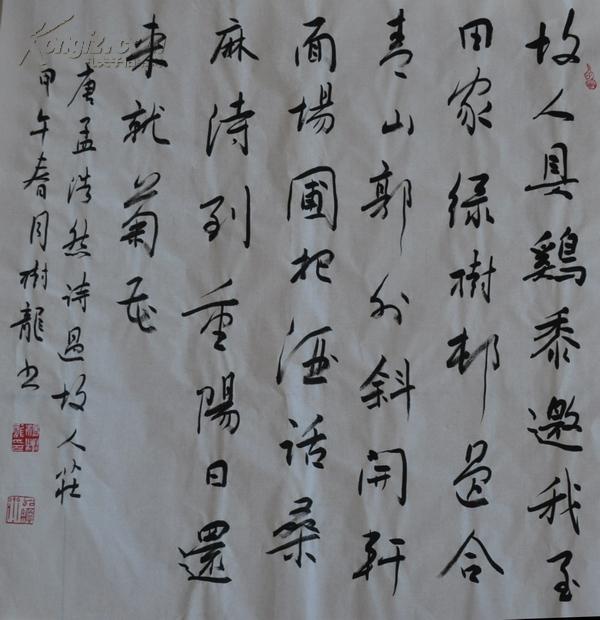 故人具鷄黍邀我至
田家绿樹邨邊合
青山郭外斜開軒
面場圃把酒話桑
麻待到重陽日還
来就菊花
唐孟浩然诗過故人莊
甲午春月樹龍书